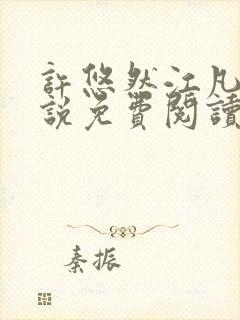 許悠然江凡
說免費閱讀
秦振